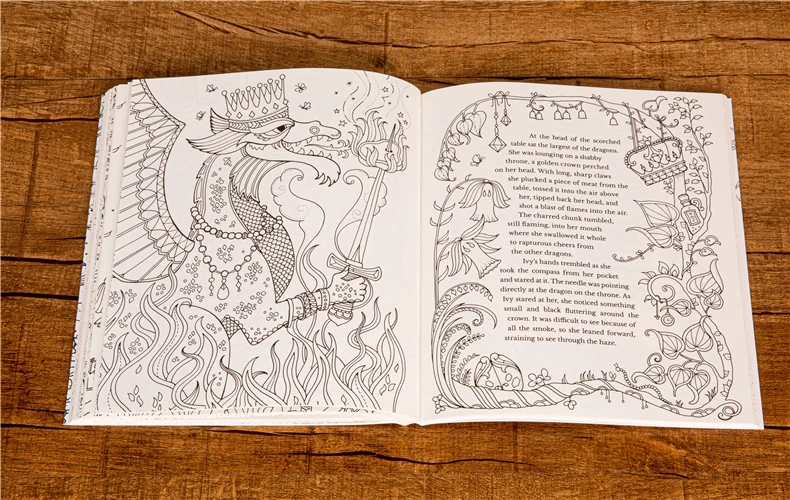 At the head of the scorched
table sat the largest of the dragons.
She was lounging on a shabby
throne, a golden crown perched
on her head. With long, sharp claws
she plucked a piece of meat from the
table, tossed it into the air above
her, tipped back her head, and
shot a blast of flames into the air.
The charred chunk tumbled,
still flaming, into her mouth
where she swallowed it whole
to rapturous cheers from
the other dragons.
Ivy's hands trembled as she
took the compass from her pocket
and stared at it. The needle was pointing
directly at the dragon on the throne. As
Ivy stared at her, she noticed something
small and black fluttering around the
crown. It was difficult to see because of
all the smoke, so she leaned forward,
straining to see through the haze.